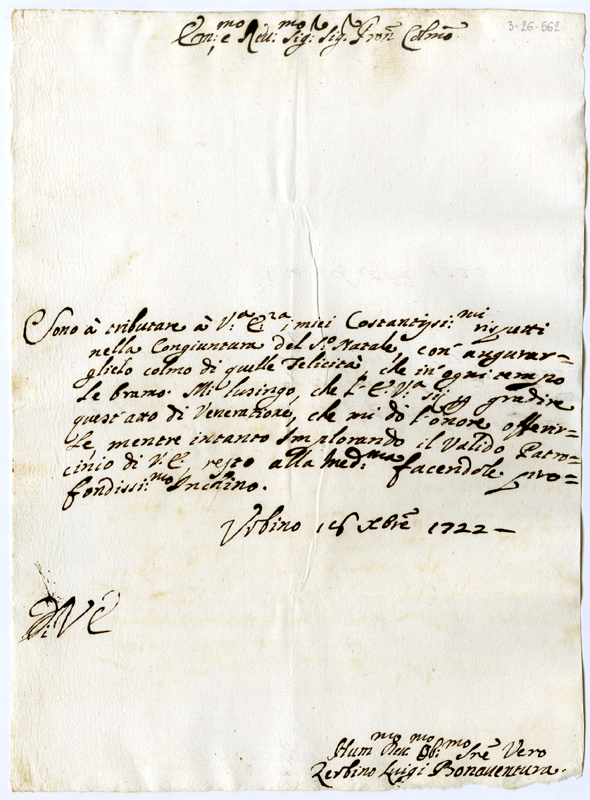 3-26-562
Em:mo e Reu:mo Sig:r Sig:r Pron Colmo
Sono à tributare à V:a E:za, miei Costantissi:mi rispetti
nella Congiuntura del S:o Natale, con augurar=
glielo colmo di quelle Felicità, che in ogni tempo
le bramo. Mi lusingo, che l'E.V:a sij p gradire
quest'atto di Veneratione, che mi dò l'onore offerir=
le, mentre intanto Implorando il Valido Patro=
cinio di V.E, resto alla med:ma facendole pro=
fondissi:mo Inchino.
Vrbino 16 Xbre 1722 —
Di V E
Hum:mo Deu:mo Ob:mo Sre Vero
Zerbino Luigi Bonauentura.